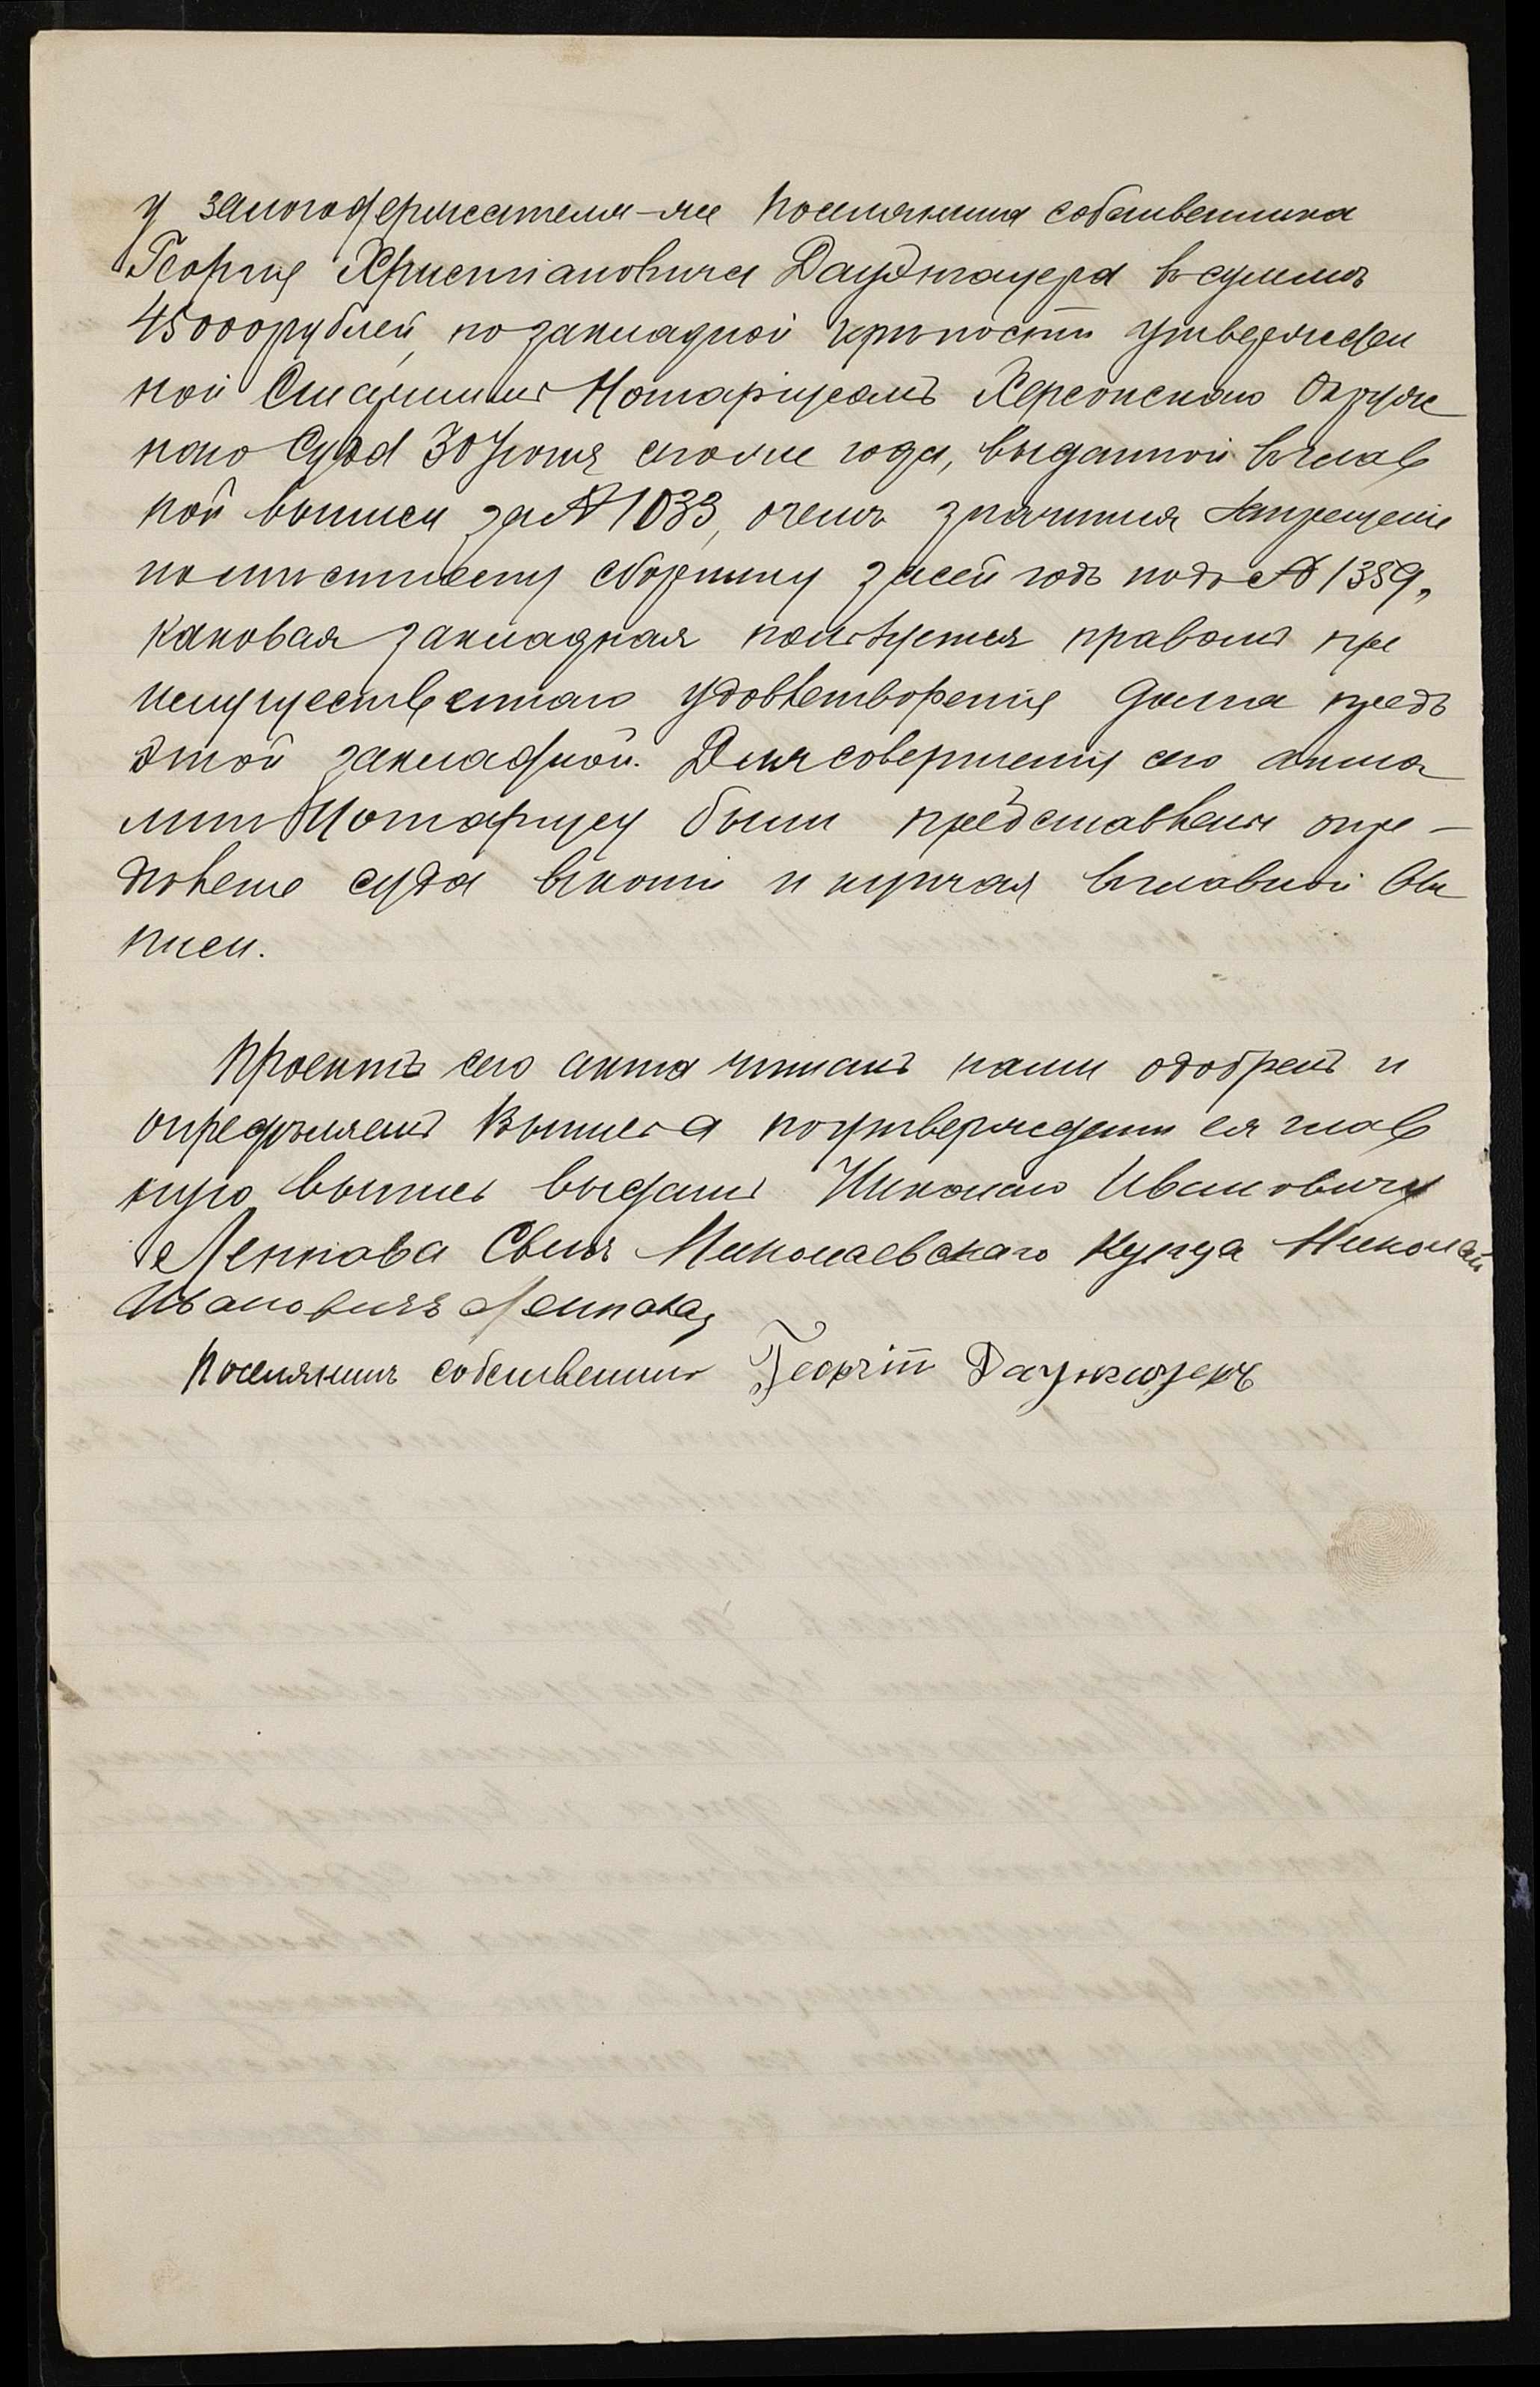 у залогодержателя-же поселянина собственника
Георгія Христіановича Даудтгауера въ суммѣ
45000 рублей, по закладной крѣпости утвержден
ной Старшимъ Нотаріусомъ Херсонскаго Окруж
наго Суда 30 Іюня сего же года, выданной въ глав
ной выписи за № 1033, о чемъ значится запрещеніе
по мѣстному сборнику за сей годъ подъ № 1359,
каковая закладная пользуется правомъ пре
имущественнаго удовлетворенія долга предъ
этой закладной. Для совершенія сего акта
мнѣ Нотаріусу были представлены опре-
дѣленіе суда въ копіи и купчая въ главной вы
писи.
Проектъ сего акта читанъ нами одобренъ и
опредѣляемъ выпись а по утвержденіи ея глав
ную выпись выдать Николаю Ивановичу
Леппова Сынъ Николаевскаго Купца Николай
Ивановичъ Леппова
Поселянинъ собственникъ Георгій